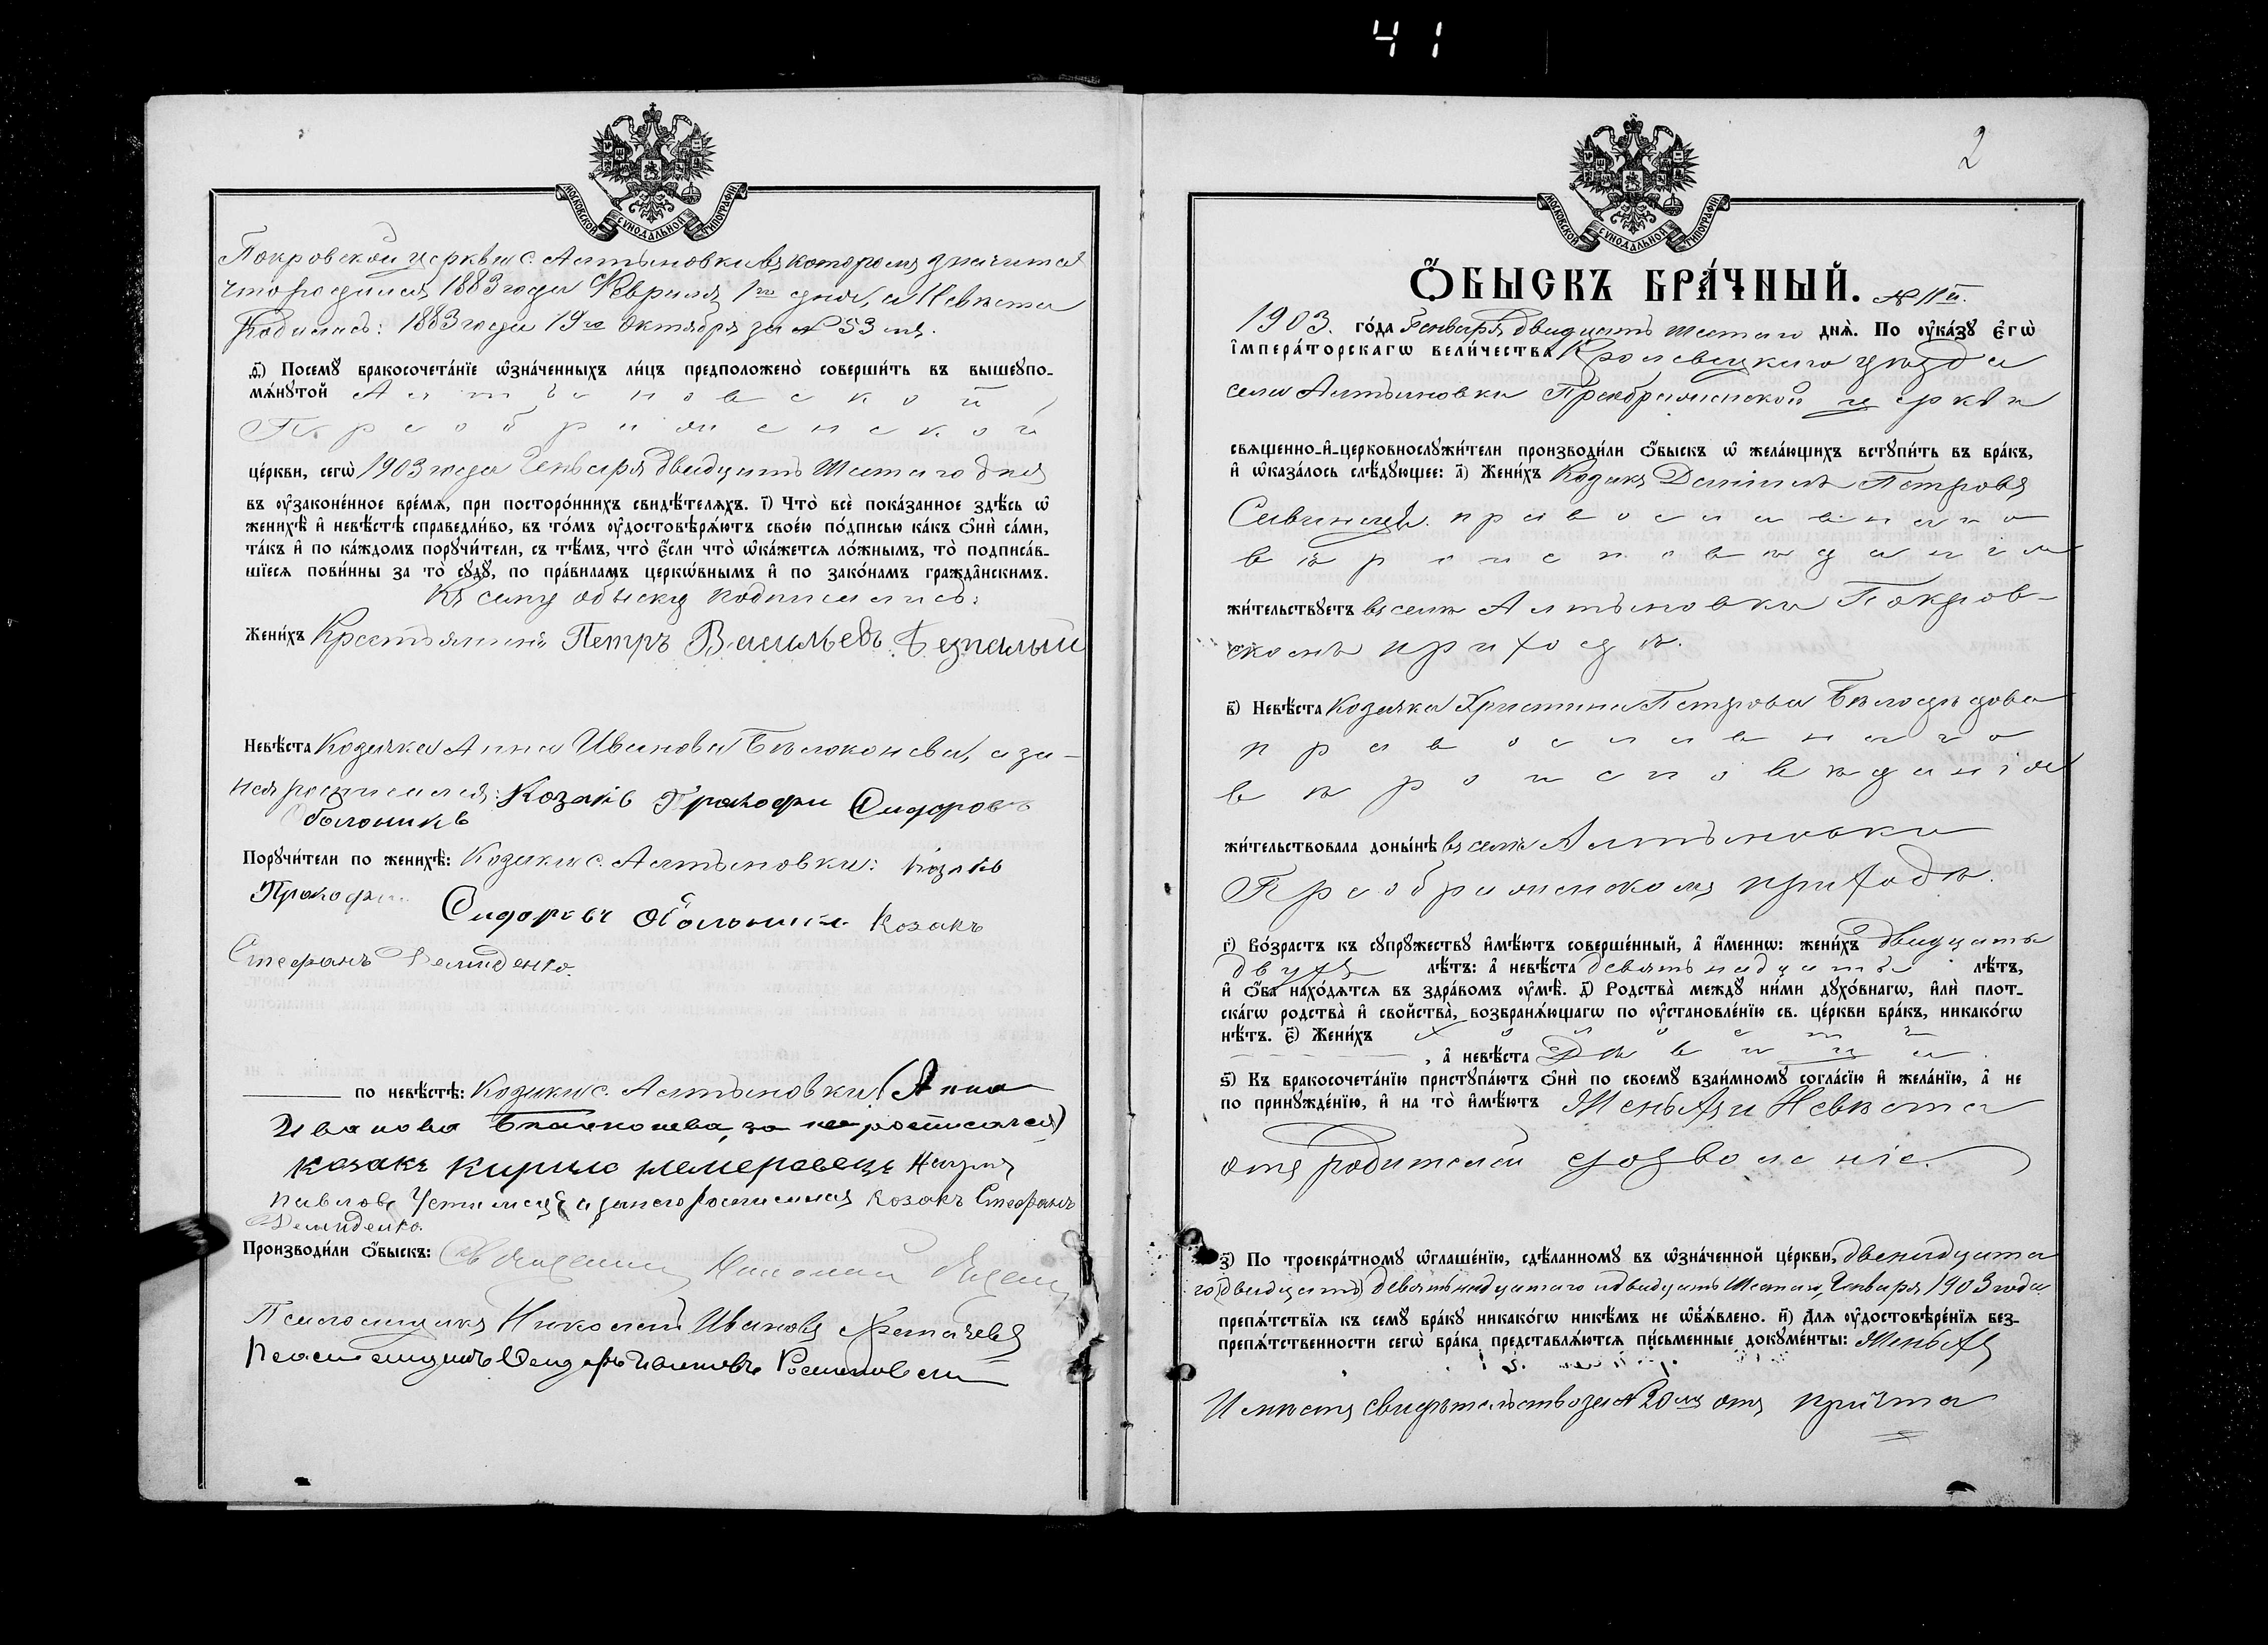 41
МОСКОВСКОЙ СѴНОДАЛЬНОЙ ТИПОГРАФІИ
Покровской церкви с. Алтыновки въ которомъ значится
что родился 1883 года Февраля 1го дня, а Невѣста
Родилась: 1883 года 19го Октября за № 53 мъ.
ѳ҃) Посемꙋ бракосочета́нїе ѡ҆зна́ченныхъ ли́цъ предположено̀ соверши́ть въ вышеꙋпо-
мѧ́нꙋтой Алтыновской,
Преображенской
це́ркви, сегѡ̀ 1903 года Генваря двадцать Шестаго дня
въ ᲂу҆законе́нное вре́мѧ, при посторо́ннихъ свидѣ́телѧхъ. і҃) Что̀ всѐ пока́занное здѣ́сь ѡ҆
женихѣ̀ и҆ невѣ́стѣ справедли́во, въ то́мъ ᲂу҆достовѣрѧ́ютъ свое́ю по́дписью ка́къ ѻ҆нѝ са́ми,
та́къ и҆ по ка́ждомъ порꙋчи́тели, съ тѣ́мъ, что̀ є҆́сли что̀ ѡ҆ка́жетсѧ ло́жнымъ, то̀ подписа́в-
шїесѧ пови́нны за то̀ сꙋдꙋ̀, по пра́виламъ церко́внымъ и҆ по зако́намъ гражда́нскимъ.
Къ сему обыску подписались:
Жени́хъ Крестьянинъ Петръ Васильевъ Безпалый
Невѣ́ста Козачка Анна Иванова Бѣлоконева, а за-
нея росписался: Козакъ Прокофи Сидоровъ
Оболоникъ
Порꙋчи́тели по женихѣ̀: Козаки с. Алтыновки: Козакъ
Прокофи
Сидоровъ Оболоникъ Козакъ
Стефанъ Демиденко.
по невѣ́стѣ: Козаки с. Алтыновки (Анна
Иванова Бѣлоконева, за нее росписался)
козакъ Кирило Немеровецъ Наумъ
Павловъ Устимецъ а за него росписался козакъ Стефанъ
Демиденко.
Производи́ли ѻ҆́быскъ: Священникъ Николай
Псаломщикъ Николай Ивановъ
Псаломщикъ
2
МОСКОВСКОЙ СѴНОДАЛЬНОЙ ТИПОГРАФІИ
Ѻ҆́БЫСКЪ БРА́ЧНЫЙ. № 11й.
1903. го́да Генваря двадцать шестаго днѧ̀. По ᲂу҆ка́зꙋ є҆гѡ̀
і҆мпера́торскагѡ вели́чества Кролевецкаго уѣзда
села Алтыновки Преображенской церкви
свѧщенно-и҆-церковнослꙋжи́тели производи́ли ѻ҆́быскъ ѡ҆ жела́ющихъ встꙋпи́ть въ бра́къ,
и҆ ѡ҆каза́лось слѣ́дꙋющее: а҃) Жени́хъ Козакъ Даніилъ Петровъ
Савинецъ православнаго
вѣроисповѣданія
жи́тельствꙋетъ въ селѣ Алтыновки Покров-
скомъ приходѣ.
в҃) Невѣ́ста Козачка Христина Петрова Бѣлодѣдова
православнаго
вѣроисповѣданія
жи́тельствовала доны́нѣ въ селѣ Алтыновки
Преображенскомъ приходѣ.
г҃) Во́зрастъ къ сꙋпрꙋ́жествꙋ и҆мѣ́ютъ соверше́нный, а҆ и҆́менно: жени́хъ двадцать
двухъ лѣ́тъ: а҆ невѣ́ста девятнадцать лѣ́тъ,
и҆ ѻ҆́ба нахо́дѧтсѧ въ здра́вомъ ᲂу҆мѣ̀. д҃) Родства̀ междꙋ̀ ни́ми дꙋхо́внагѡ, и҆лѝ плот-
ска́гѡ родства̀ и҆ сво́йства̀, возбранѧ́ющагѡ по ᲂу҆становле́нїю св. це́ркви бра́къ, никако́гѡ
нѣ́тъ. є҃) Жени́хъ холостъ
, а҆ невѣ́ста Дѣвица.
ѕ҃) Къ бракосочета́нїю пристꙋпа́ютъ ѻ҆нѝ по своемꙋ̀ взаи́мномꙋ согла́сїю и҆ жела́нїю, а҆ не
по принꙋжде́нїю, и҆ на то̀ и҆мѣ́ютъ Женихъ и Невѣста
отъ родителей дозволеніе.
з҃) По троекра́тномꙋ ѡ҆глаше́нїю, сдѣ́ланномꙋ въ ѡ҆зна́ченной це́ркви, двенадцата
го, девятнадцатаго и двадцать Шестаго, Генваря 1903 года
препѧ́тствїѧ къ семꙋ̀ бра́кꙋ никако́гѡ никѣ́мъ не ѡ҆б̾ѧ́влено. и҃) Длѧ ᲂу҆достовѣре́нїѧ без-
препѧ́тственности сегѡ̀ бра́ка представлѧ́ютсѧ пи́сьменные докꙋме́нты: Женихъ
Имѣетъ свидѣтельство за № 20 мъ отъ причта